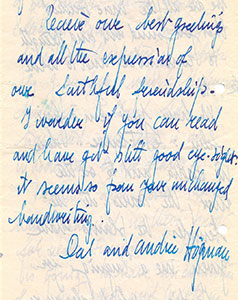 Receive our best greetings
and all the expression of
our faithful friendship.
I wonder if you can read
and have got still good eye-sight.
it seems so from your unchanged
handwriting.
and Andrée